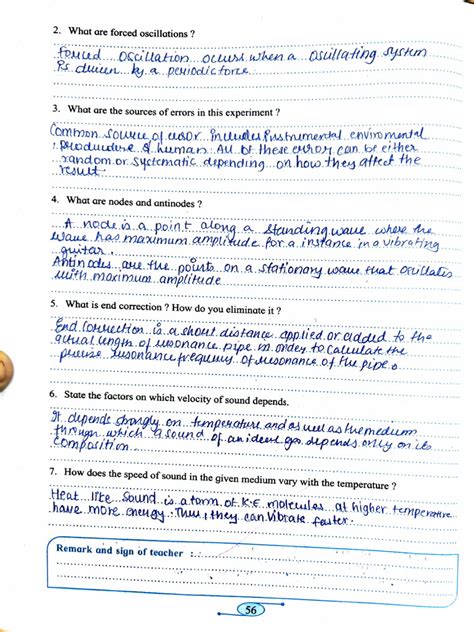 2. What are forced oscillations ?
Forced oscillation occurs when a oscillating system
is driven by a periodic force
3. What are the sources of errors in this experiment ?
Common source of error includes instrumental enviromental
produceture & human. All of these error can be either
random or systematic depending on how they affect the
result
4. What are nodes and antinodes ?
A node is a point along a standing wave where the
wave has maximum amplitude for a instance in a vibrating
guitar.
Antinodes are the points on a stationary wave that oscillates
with maximum amplitude
5. What is end correction ? How do you eliminate it ?
End correction is a short distance applied or added to the
actual length of resonance pipe in order to calculate the
precise resonance frequency of resonance of the pipe.
6. State the factors on which velocity of sound depends.
It depends strongly on temperature and as well as the medium
through which a sound of an ideal gas depends only on its
composition
7. How does the speed of sound in the given medium vary with the temperature ?
Heat like sound is a form of K.E molecules at higher temperature
have more energy. Thus, they can vibrate faster.
Remark and sign of teacher :
56